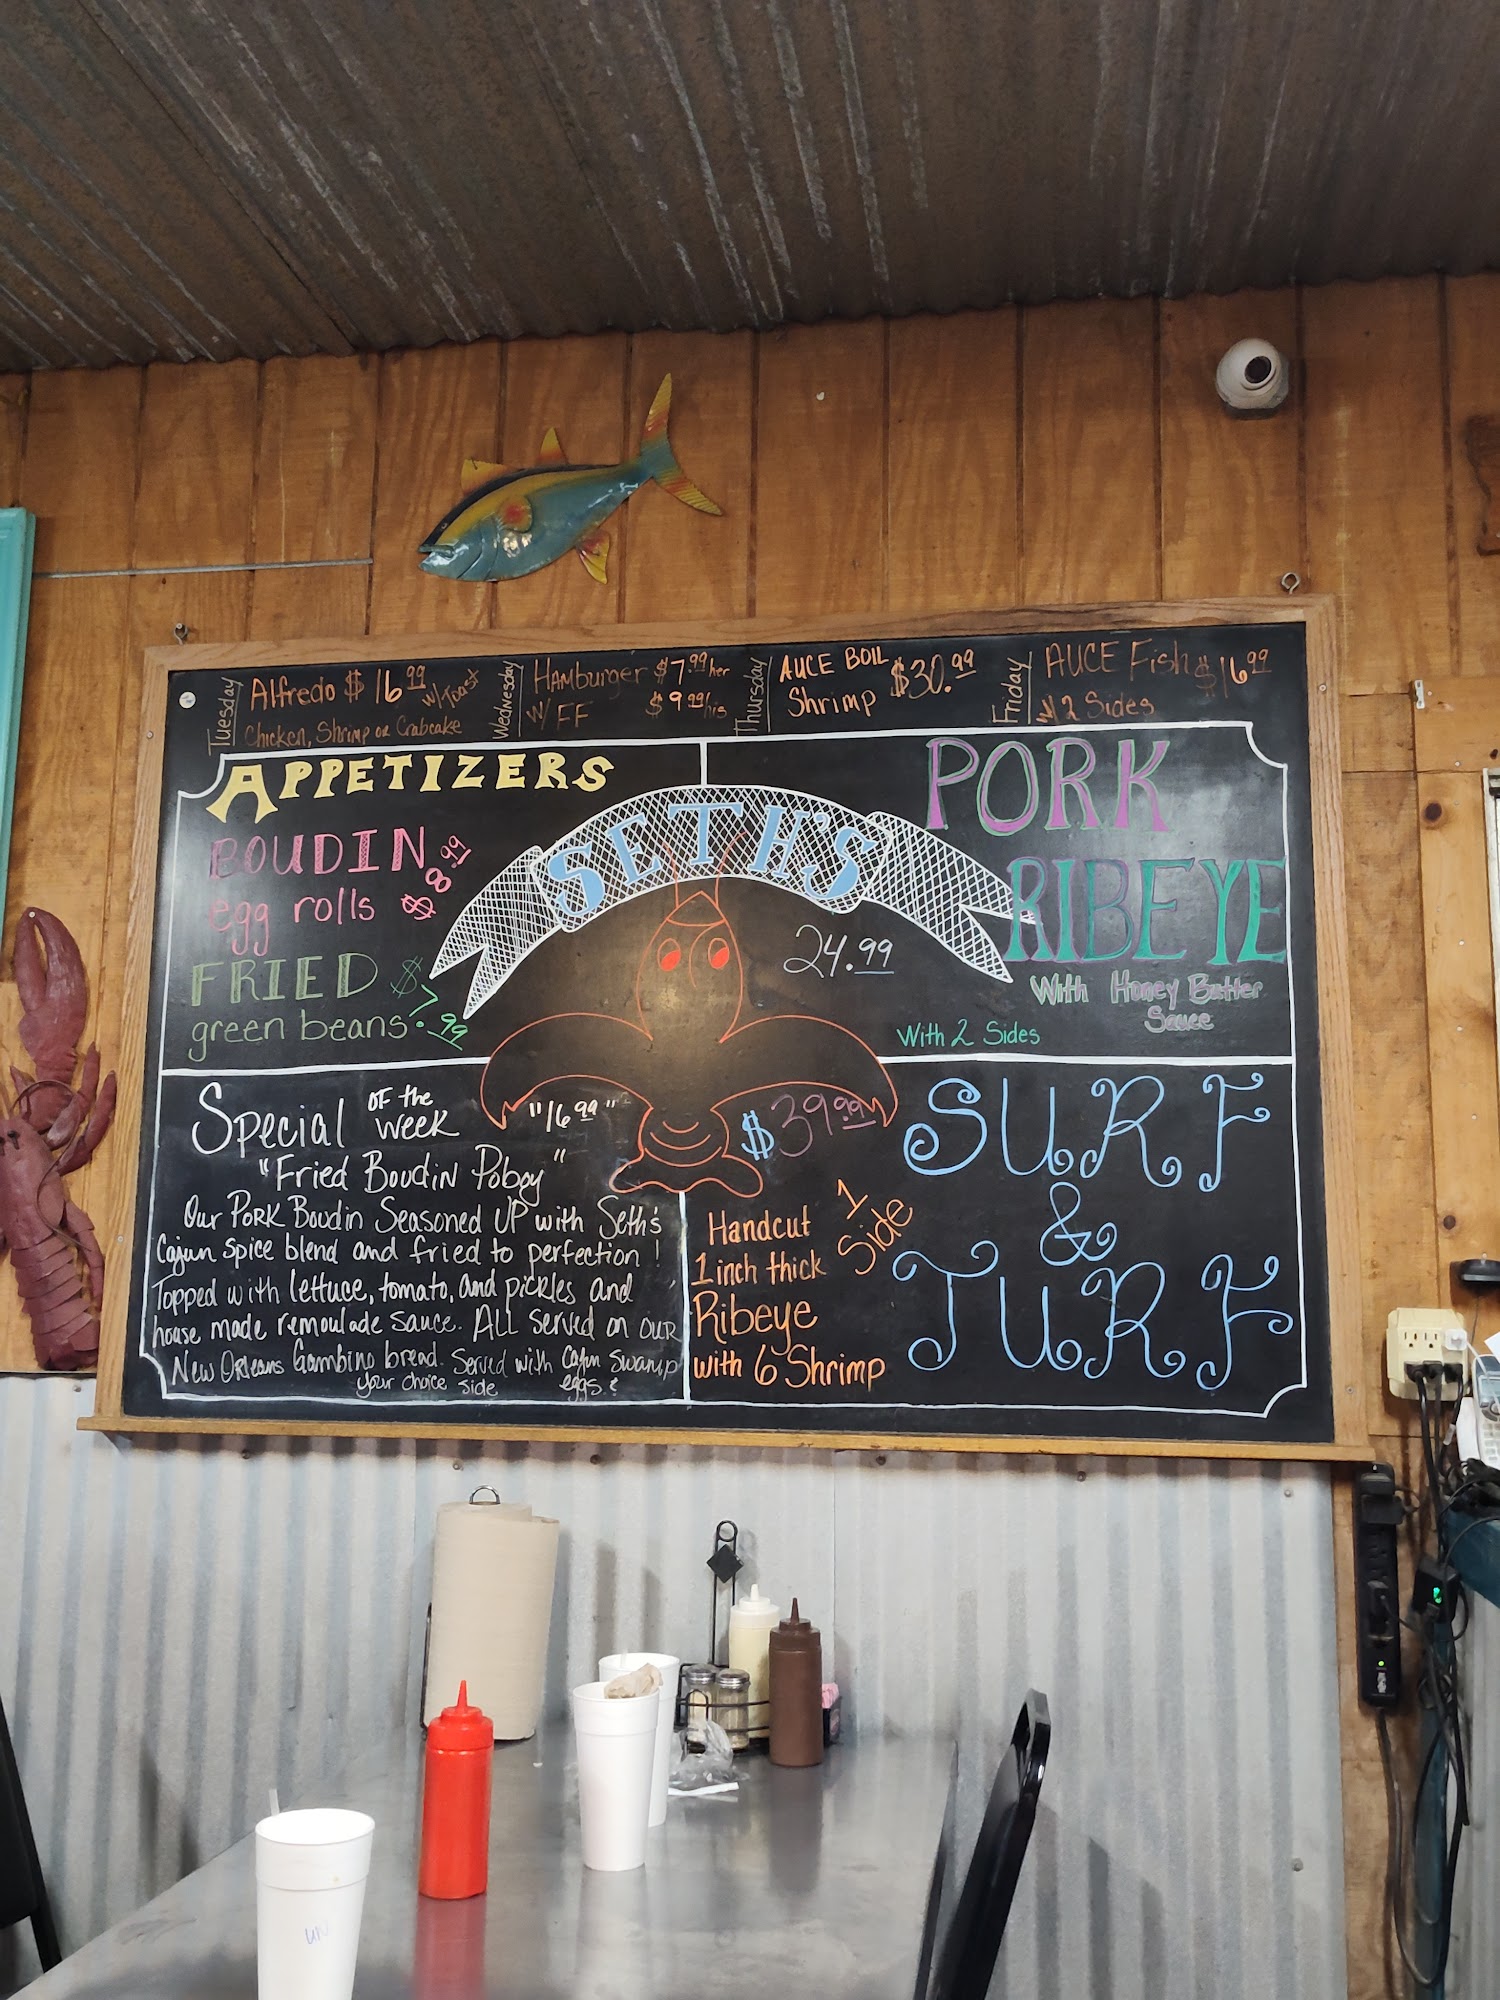 Tuesday
Alfredo $16.99 w/Toast
Chicken, Shrimp or Crabcake
Wednesday
Hamburger $7.99 her
w/ FF $9.99 his
Thursday
AUCE BOIL $30.99
Shrimp
Friday
AUCE Fish $16.99
w/ 2 Sides
APPETIZERS
BOUDIN
egg rolls $8.99
FRIED
green beans $7.99
SETH'S
PORK
RIBEYE
24.99
With Honey Butter
Sauce
With 2 Sides
Special OF the Week "16.99"
"Fried Boudin Poboy"
Our PORK Boudin Seasoned UP with Seth's
Cajun spice blend and fried to perfection!
Topped with lettuce, tomato, and pickles and
house made remoulade sauce. ALL served on our
New Orleans Gambino bread. Served with Cajun Swamp
your choice side eggs. &
$39.99
SURF
&
TURF
1 Side
Handcut
1 inch thick
Ribeye
with 6 Shrimp
UN